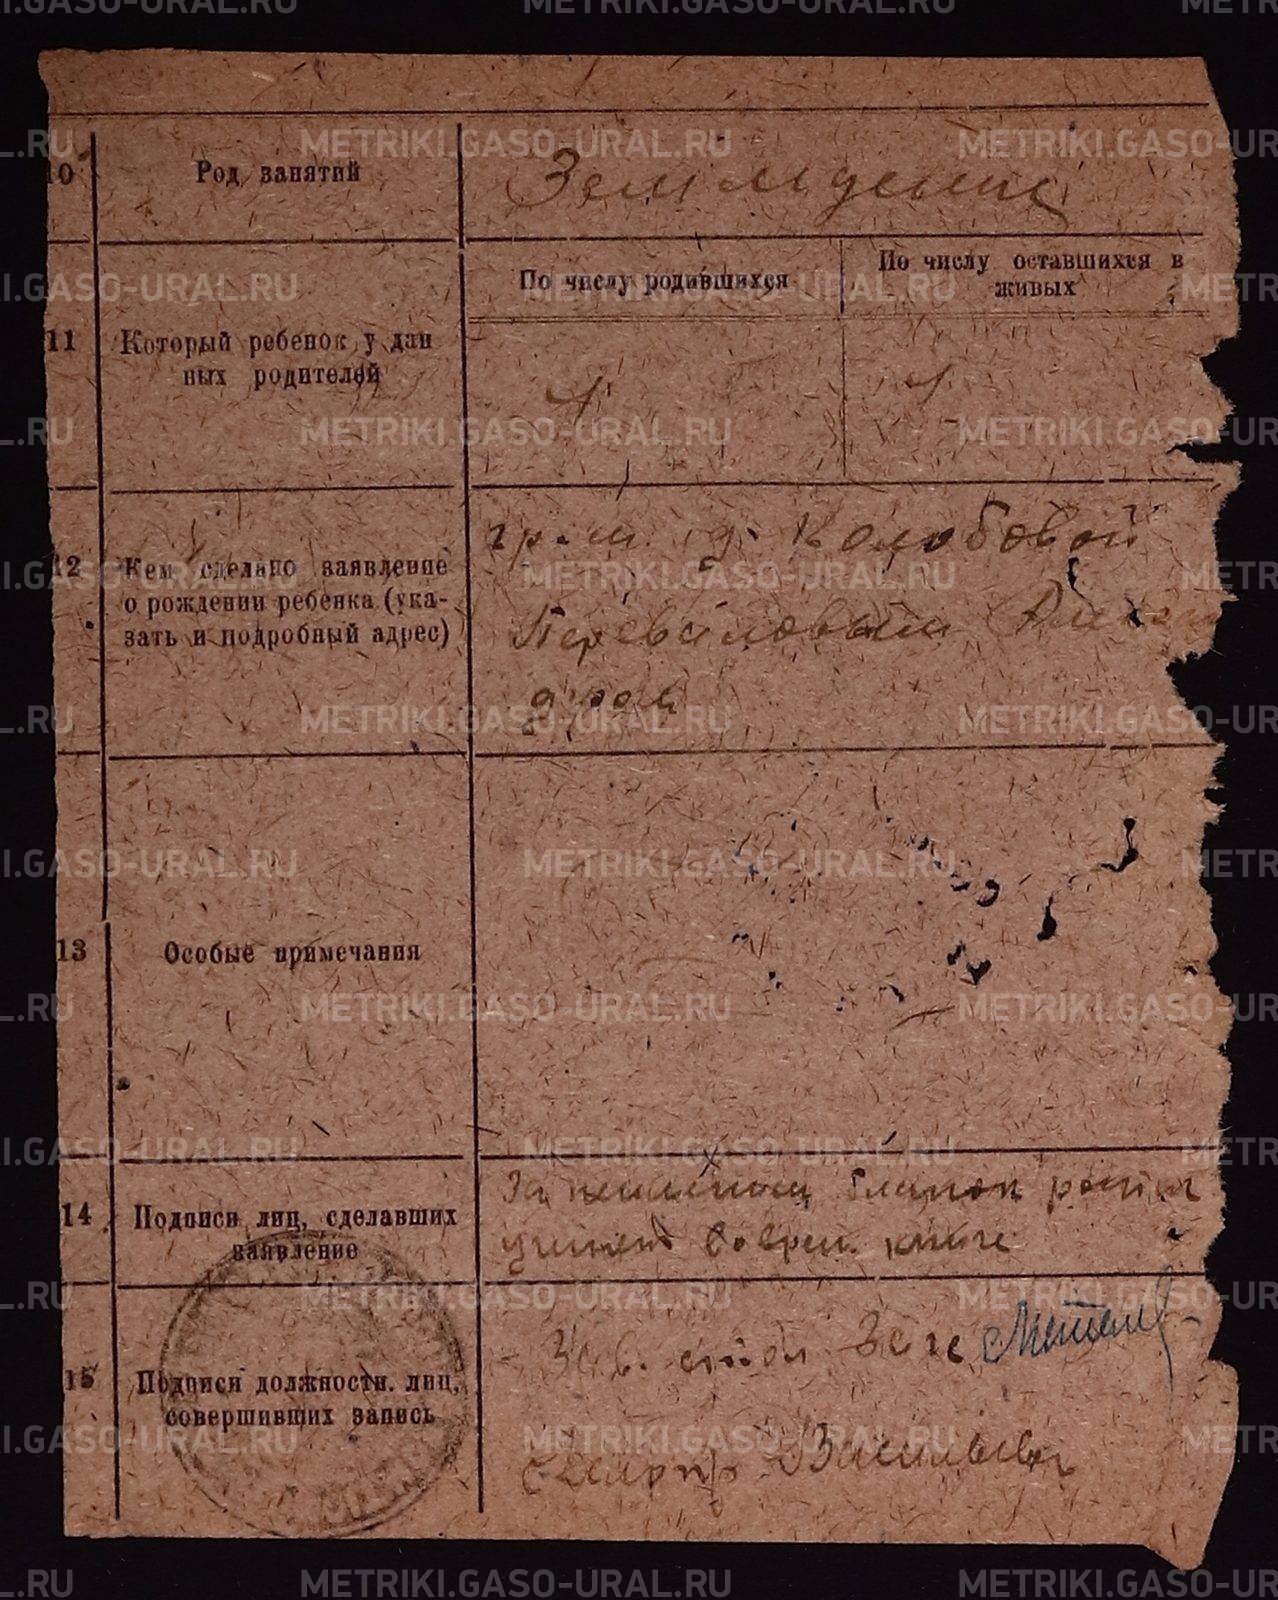 10 Род занятий Земледелие
По числу родившихся По числу оставшихся в живых
11 Который ребенок у дан
ных родителей 1 1
12 Кем сделано заявление
о рождении ребенка (ука-
зать и подробный адрес)
гр-м д. Колобовой
Переваловым Алексан
дром
13 Особые примечания
14 Подписи лиц, сделавших
заявление
бланок
во врем. книге
15 Подписи должностн. лиц,
совершивших запись
Зав. стол Загс
Делопр Васильев
METRIKI.GASO-URAL.RU